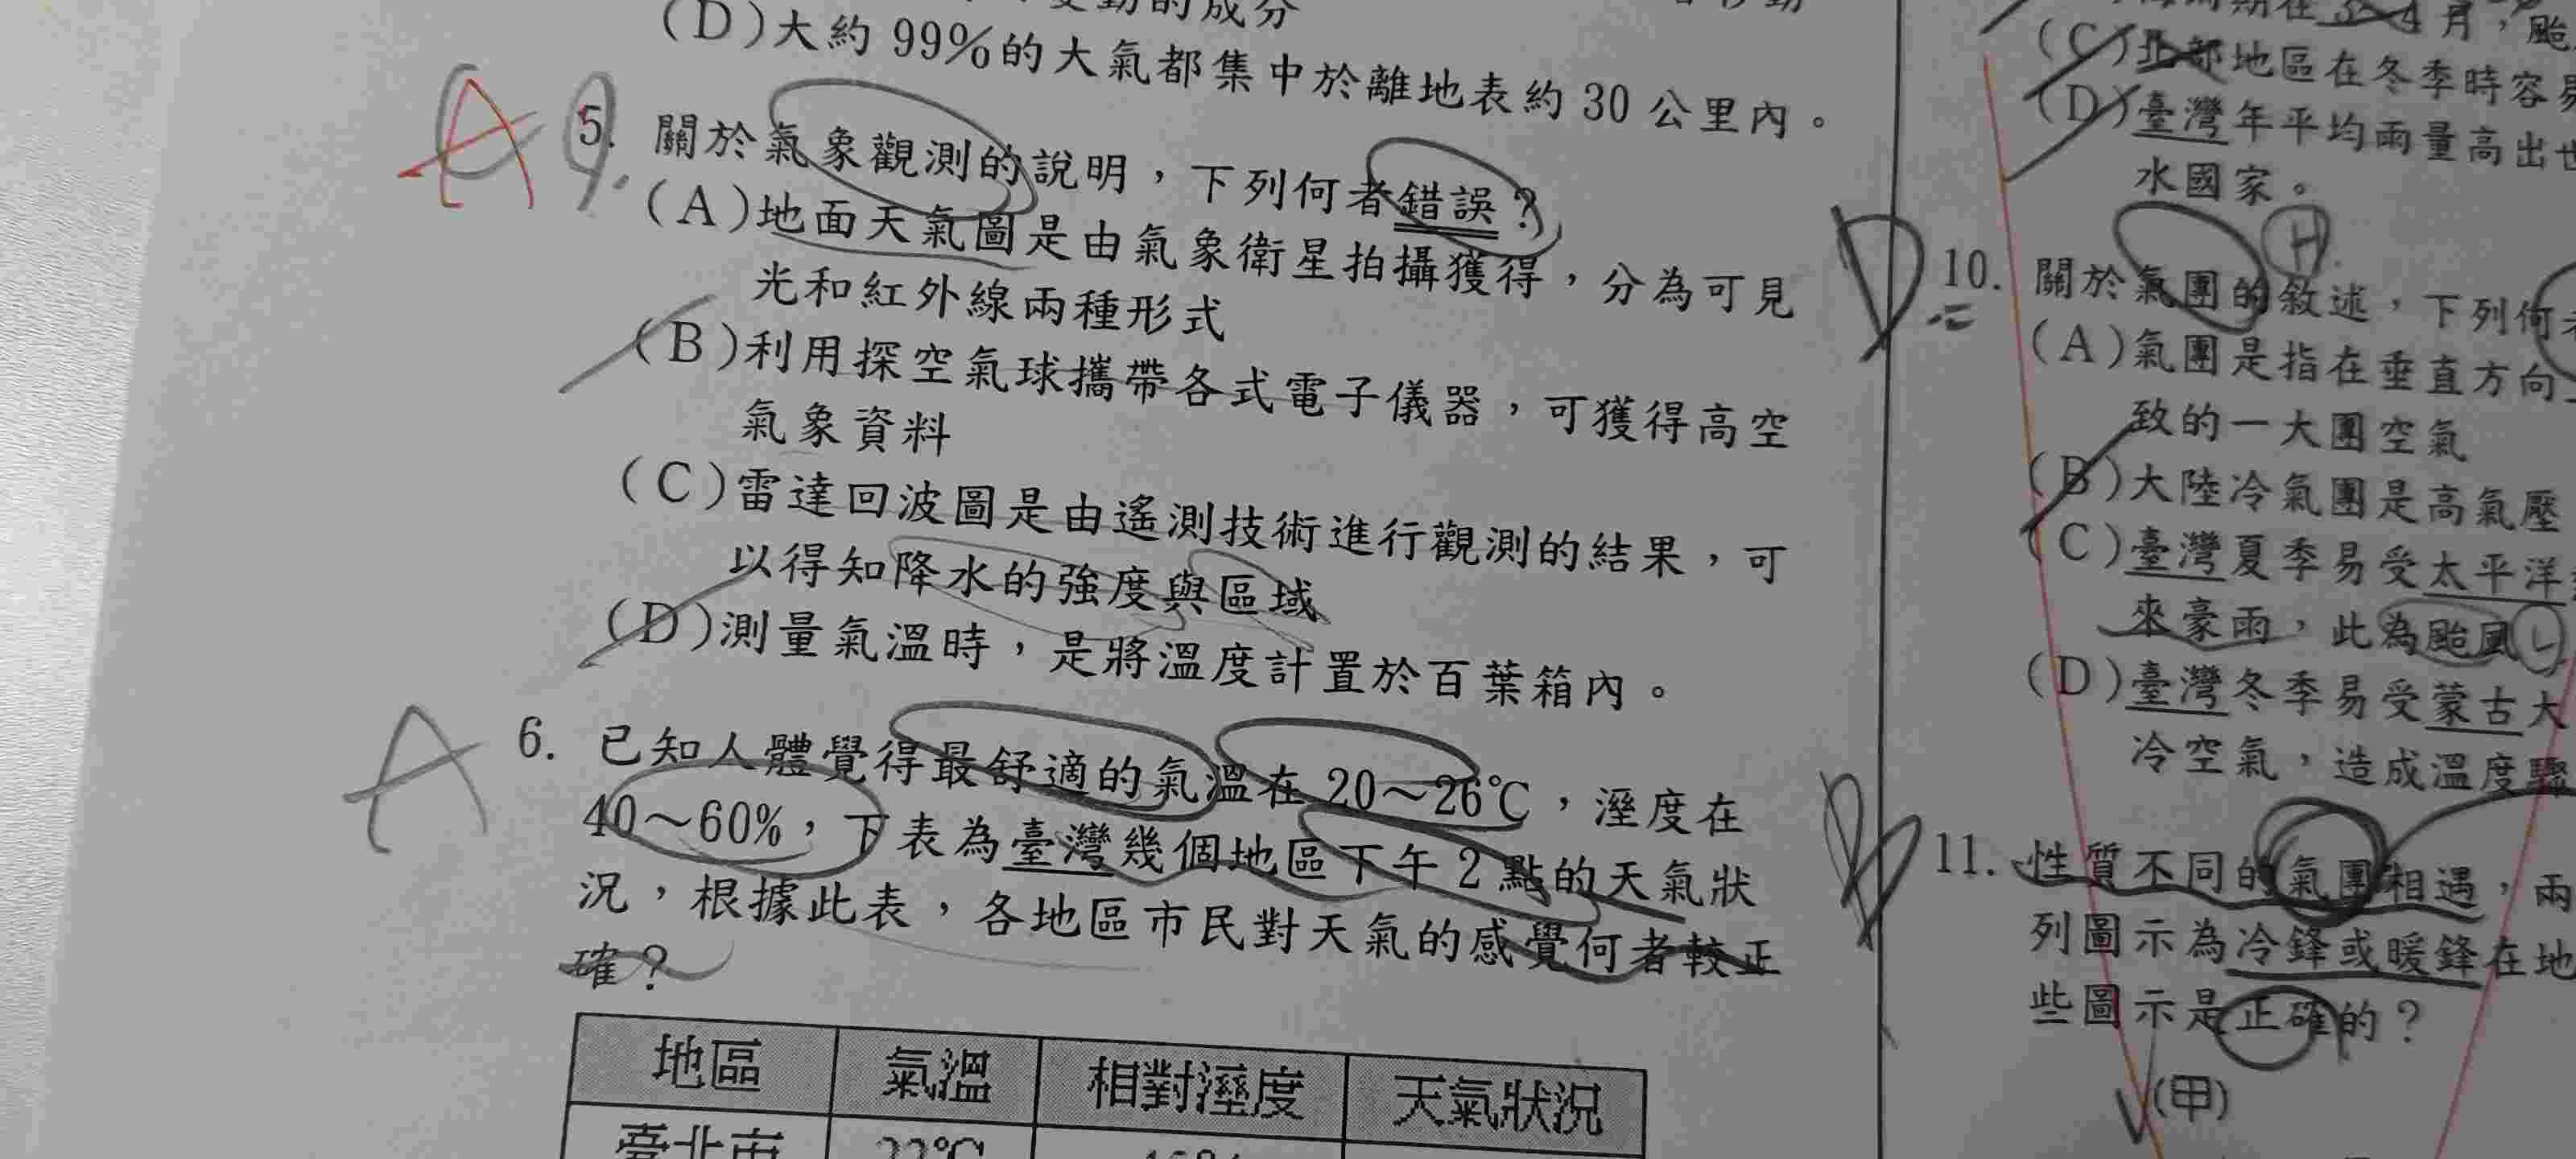 (D)大約 99%的大氣都集中於離地表約 30 公里內。
5. 關於氣象觀測的說明,下列何者錯誤?
(A)地面天氣圖是由氣象衛星拍攝獲得,分為可見
光和紅外線兩種形式
(B)利用探空氣球攜帶各式電子儀器,可獲得高空
氣象資料
(C)雷達回波圖是由遙測技術進行觀測的結果,可
以得知降水的強度與區域
(D)測量氣溫時,是將溫度計置於百葉箱內。
A
A
6. 已知人體覺得最舒適的氣溫在 20~26℃,溼度在
40~60%,下表為臺灣幾個地區下午 2 點的天氣狀
況,根據此表,各地區市民對天氣的感覺何者較正
確?
地區 氣溫 相對溼度 天氣狀況
臺北市
(C)北部地區在冬季時容易
(D)臺灣年平均雨量高出
水國家。
H
10. 關於氣團的敘述,下列何
(A)氣團是指在垂直方向
致的一大團空氣
(B)大陸冷氣團是高氣壓
(C)臺灣夏季易受太平洋
來豪雨,此為颱風
L
(D)臺灣冬季易受蒙古大
冷空氣,造成溫度驟
11. 性質不同的氣團相遇,兩
列圖示為冷鋒或暖鋒在地
些圖示是正確的?
(甲)